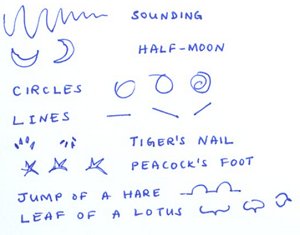 SOUNDING
HALF-MOON
CIRCLES
LINES
TIGER'S NAIL
PEACOCK'S FOOT
JUMP OF A HARE
LEAF OF A LOTUS